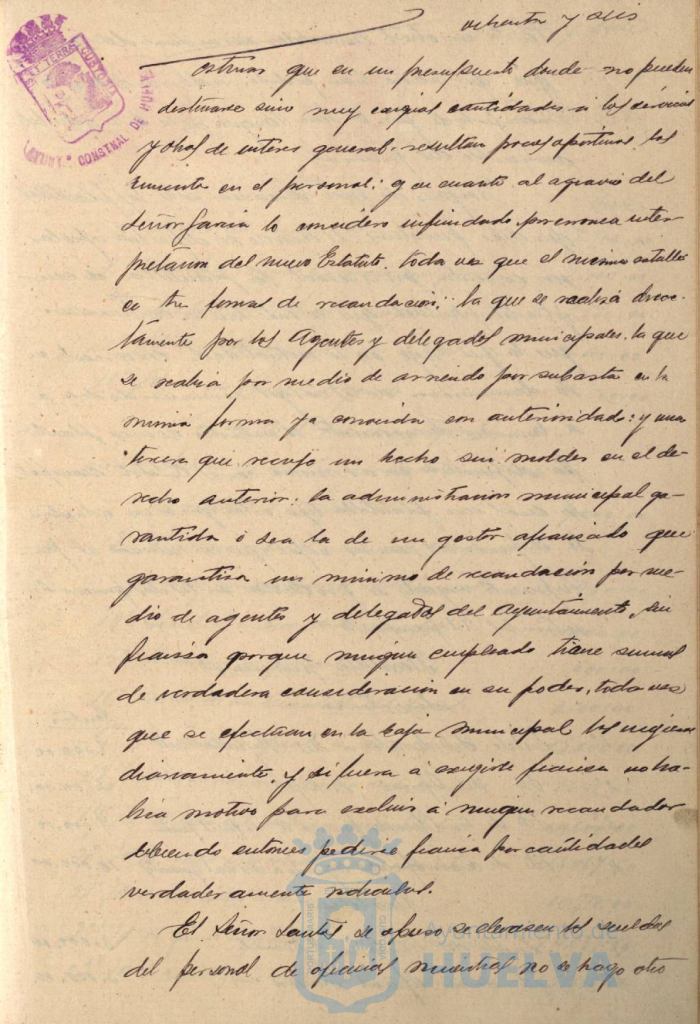 ochenta y seis
que en un presupuesto donde no pueden
destinarse sino muy exiguas cantidades a los servicios
y obras de interés general, resultan poco oportunos los
en el personal; y en cuanto al agravio del
Señor García lo considero infundado, por erronea inter-
pretación del nuevo Estatuto, toda vez que el mismo establece
ce tres formas de recaudación: la que se realiza direc-
tamente por los Agentes y delegados municipales, la que
se realiza por medio de arriendo por subasta en la
misma forma ya conocida con anterioridad; y una
tercera que recojo un hecho sin moldes en el de-
recho anterior: la administración municipal ga-
rantida ó sea la de un gestor afianzado que
garantiza un minimo de recaudación por me-
dio de agentes y delegados del Ayuntamiento, sin
fianza porque ningun empleado tiene sumas
de verdadera consideración en su poder, toda vez
que se efectuan en la Caja municipal los ingresos
diariamente, y si fuera á exigirse fianza no ha-
bria motivo para excluir á ningun recaudador
debiendo entonces pedirse fianza por cantidades
verdaderamente ridiculas.
El Señor se opuso se elevasen los sueldos
del personal de oficinas mientras no se haga otro
Ayuntamiento de
HUELVA